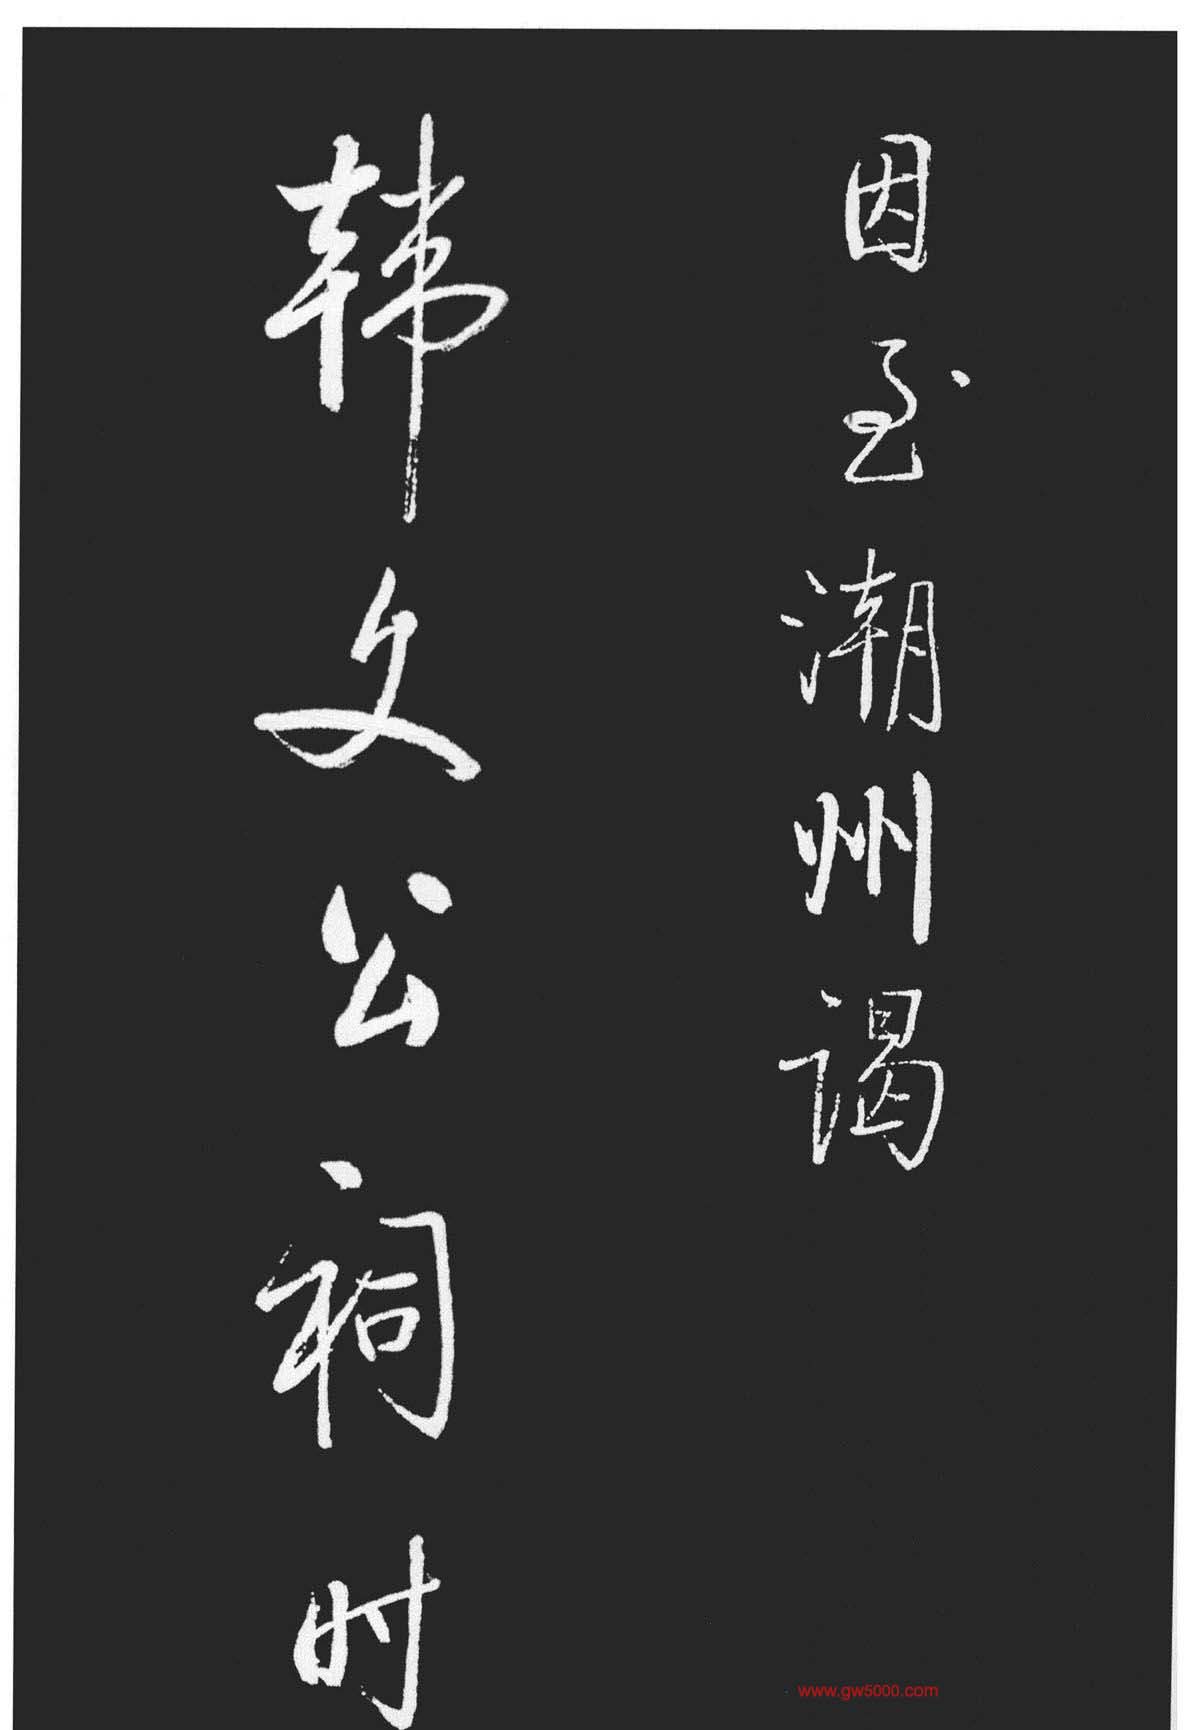 因至潮州谒
韩文公祠时
www.gw5000.com